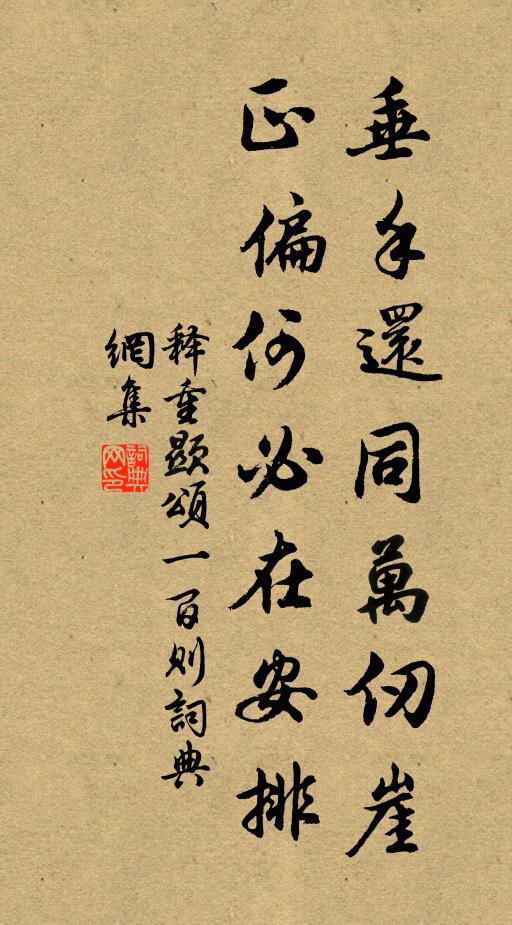 垂手還同萬仞崖
正偏何必在安排
釋重顯頌一百則詞典
網集
詞典網印